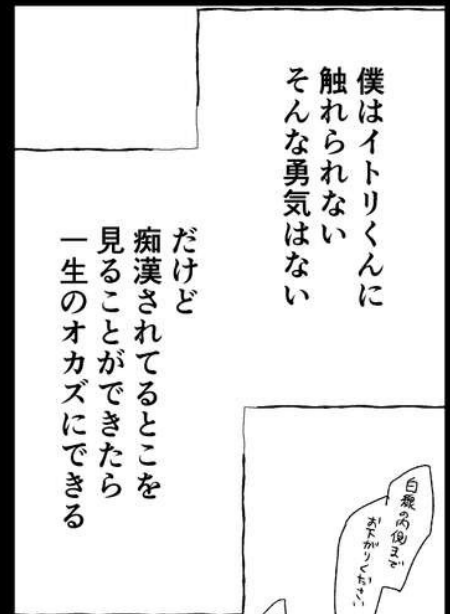 僕はイトリくんに
触れられない
そんな勇気はない
だけど
痴漢されてるとこを
見ることができたら
一生のオカズにできる
白線の内側まで
お下がりください